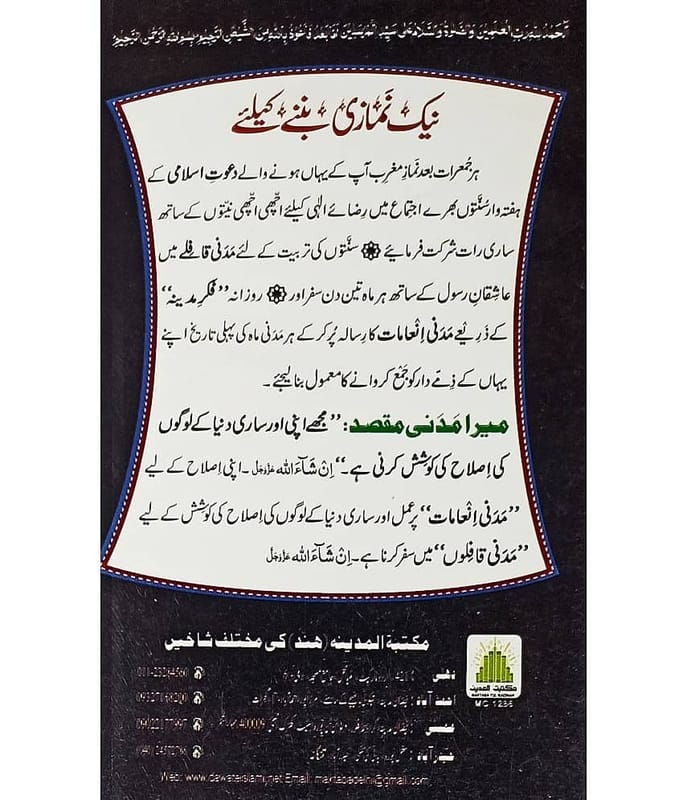 اَلْحَمْدُ لِلّٰهِ رَبِّ الْعٰلَمِيْنَ وَالصَّلٰوةُ وَالسَّلَامُ عَلٰى سَيِّدِ الْمُرْسَلِيْنَ اَمَّا بَعْدُ فَاَعُوْذُ بِاللّٰهِ مِنَ الشَّيْطٰنِ الرَّجِيْمِ بِسْمِ اللّٰهِ الرَّحْمٰنِ الرَّحِيْمِ
نیک نَمازی بننے کیلئے
ہر جُمعرات بعد نَمازِ مغرِب آپ کے یہاں ہونے والے دعوتِ اسلامی کے
ہفتہ وار سُنَّتوں بھرے اجتِماع میں رِضائے الٰہی کیلئے اچّھی اچّھی نیّتوں کے ساتھ
ساری رات شرکت فرمائیے ۞ سنّتوں کی تربیت کے لئے مَدَنی قافِلے میں
عاشِقانِ رسول کے ساتھ ہر ماہ تین دن سفر اور ۞ روزانہ ”فکرِ مدینہ“
کے ذَرِیعے مَدَنی اِنْعامات کا رِسالہ پُر کر کے ہر مَدَنی ماہ کی پہلی تاریخ اپنے
یہاں کے ذِمّے دار کو جَمْع کروانے کا معمول بنا لیجئے ۔
میرا مَدَنی مقصد: ”مجھے اپنی اور ساری دنیا کے لوگوں
کی اِصلاح کی کوشش کرنی ہے۔“ اِنْ شَآءَ اللّٰه عَزَّوَجَلَّ ۔ اپنی اِصلاح کے لیے
”مَدَنی اِنْعامات“ پر عمل اور ساری دنیا کے لوگوں کی اِصلاح کی کوشش کے لیے
”مَدَنی قافِلوں“ میں سفر کرنا ہے۔ اِنْ شَآءَ اللّٰه عَزَّوَجَلَّ
مکتبۃ المدینہ (ہند) کی مختلف شاخیں
دہلی
احمد آباد
ممبئی 400009
حیدرآباد
مکتبۃ المدینہ
MAKTABA TUL MADINAH
MC 1286
Web: www.dawateislami.net Email: maktabadelhi@gmail.com